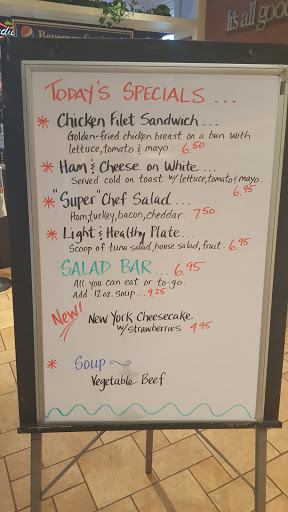 It's all good
TODAY'S SPECIALS ...
* Chicken Filet Sandwich ...
Golden-fried chicken breast on a bun with
lettuce, tomato & mayo. 6.50
* Ham & Cheese on White ...
Served cold on toast w/ lettuce, tomato & mayo.
6.95
* "Super" Chef Salad ...
Ham, turkey, bacon, cheddar. 7.50
* Light & Healthy Plate ...
Scoop of tuna salad, house salad, fruit. 6.95
SALAD BAR ... 6.95
All you can eat or to-go.
Add 12 oz. soup ... 9.25
New!
New York Cheesecake
w/strawberries 4.95
* Soup
Vegetable Beef